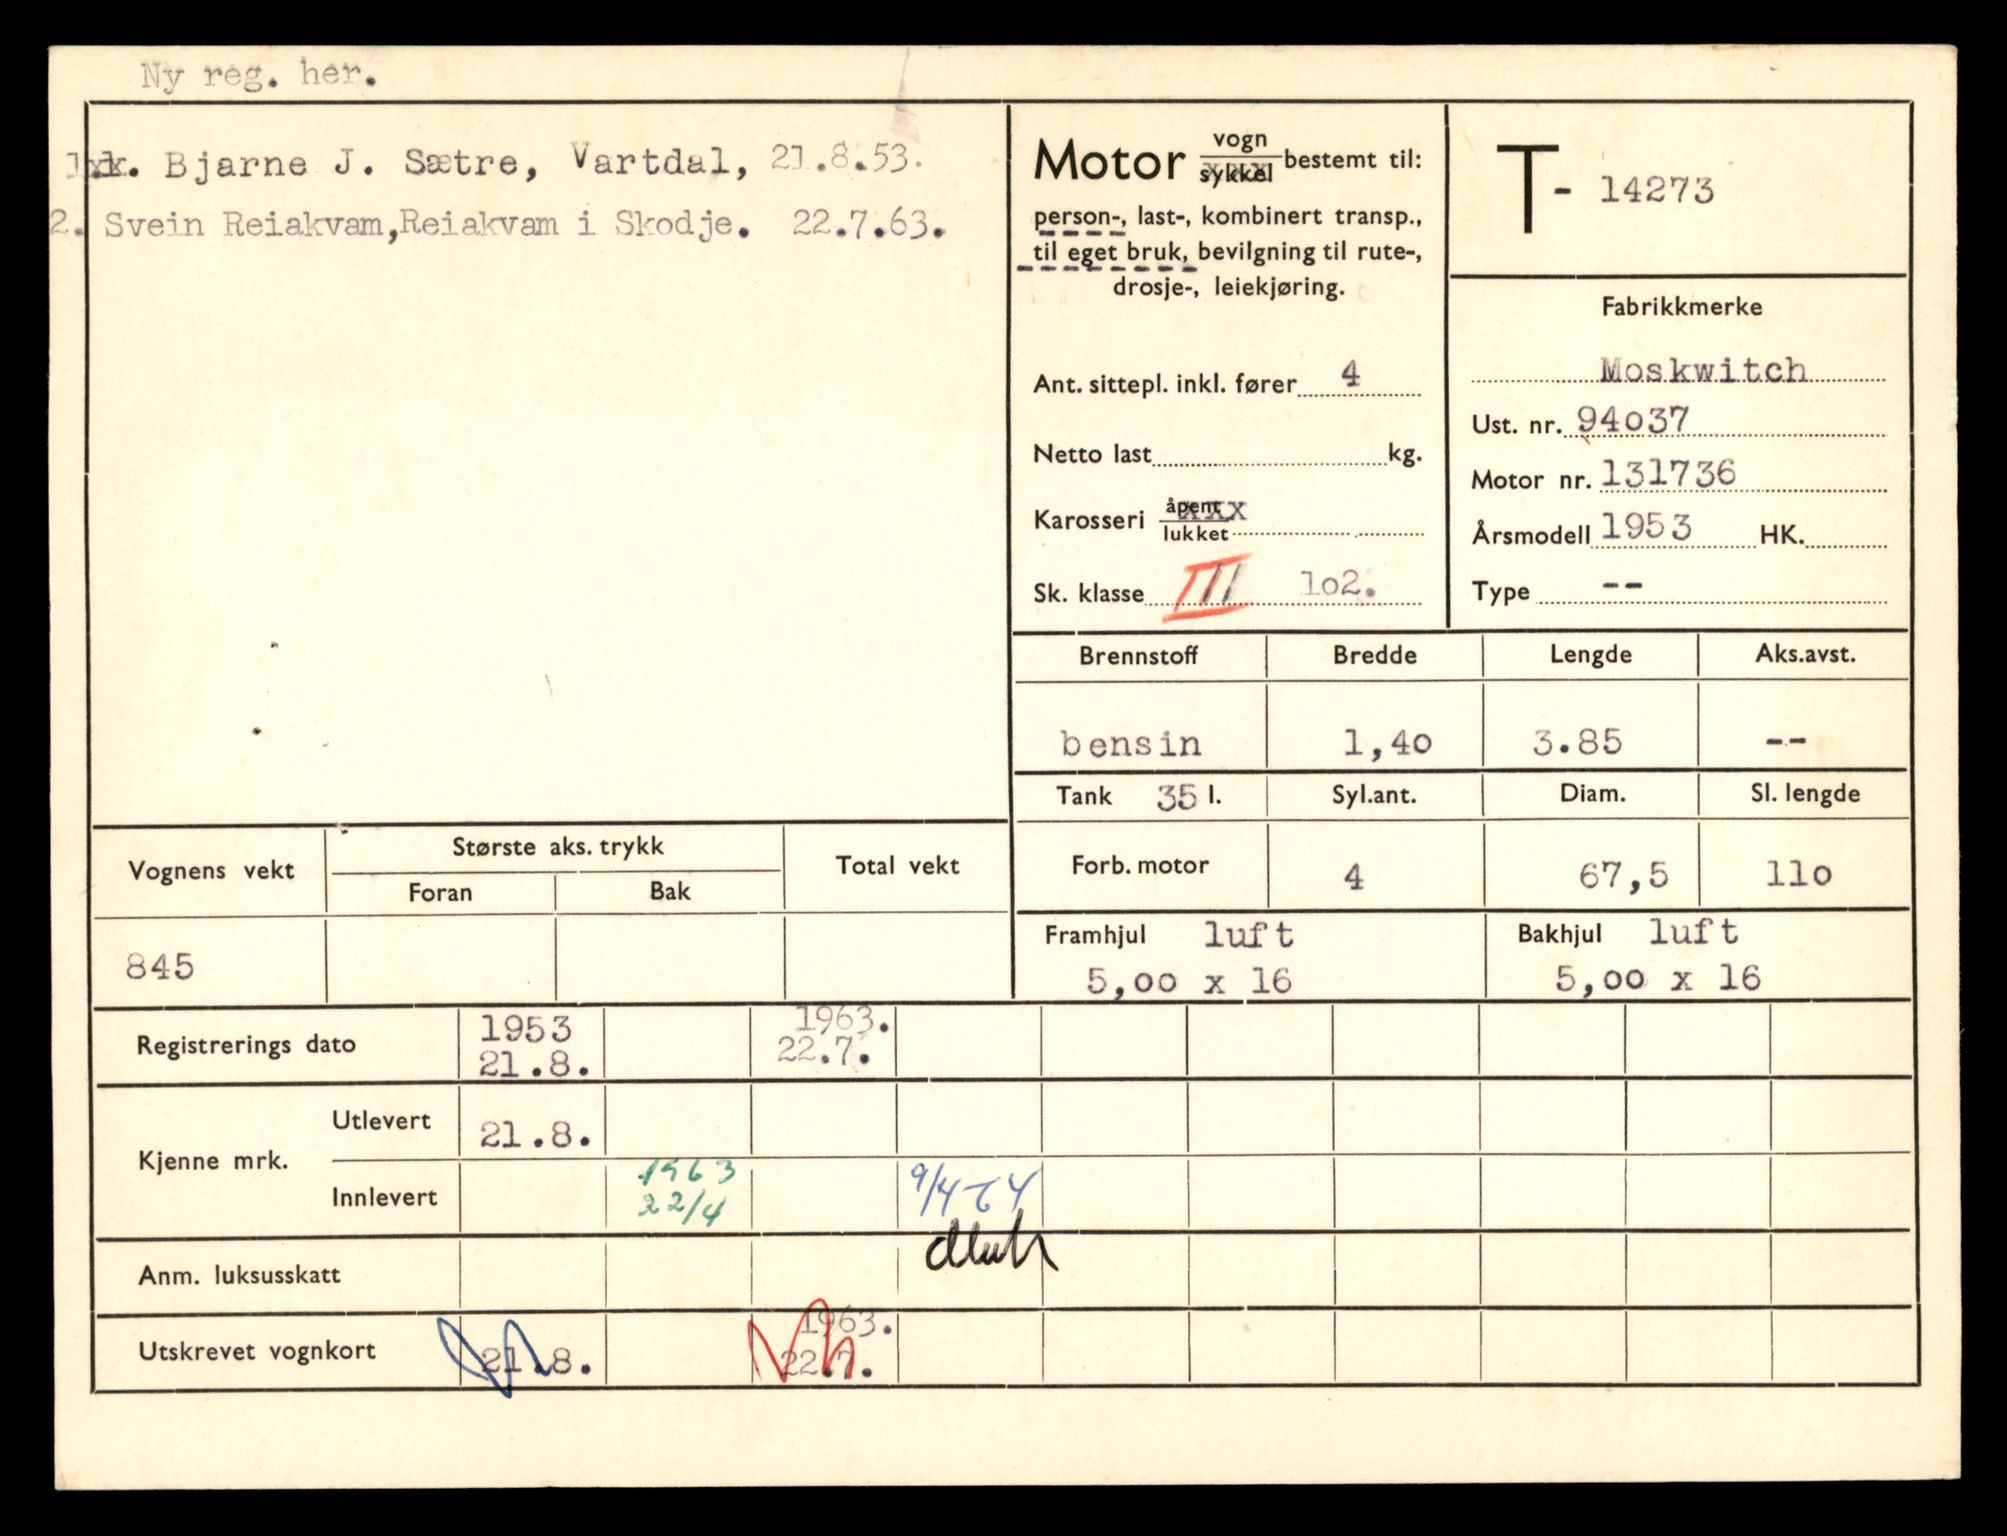 Ny reg. her.
1. Bjarne J. Sætre, Vartdal, 21.8.53.
2. Svein Reiakvam, Reiakvam i Skodje. 22.7.63.
Motor vogn
sykkel bestemt til:
person-, last-, kombinert transp.,
til eget bruk, bevilgning til rute-,
drosje-, leiekjøring.
Ant. sittepl. inkl. fører 4
Netto last kg.
Karosseri åpent
lukket
Sk. klasse III 1o2.
T- 14273
Fabrikkmerke
Moskwitch
Ust. nr. 94o37
Motor nr. 131736
Årsmodell 1953 HK.
Type --
Brennstoff Bredde Lengde Aks.avst.
bensin 1,4o 3.85 --
Tank 35 l. Syl.ant. Diam. Sl. lengde
Forb. motor 4 67,5 11o
Framhjul luft Bakhjul luft
5,oo x 16 5,oo x 16
Vognens vekt Største aks. trykk Total vekt
Foran Bak
845
Registrerings dato 1953 1963.
21.8. 22.7.
Kjenne mrk. Utlevert 21.8.
Innlevert 1963 9/4-64
22/4
Anm. luksusskatt
Utskrevet vognkort 1963.
21.8. 22.7.